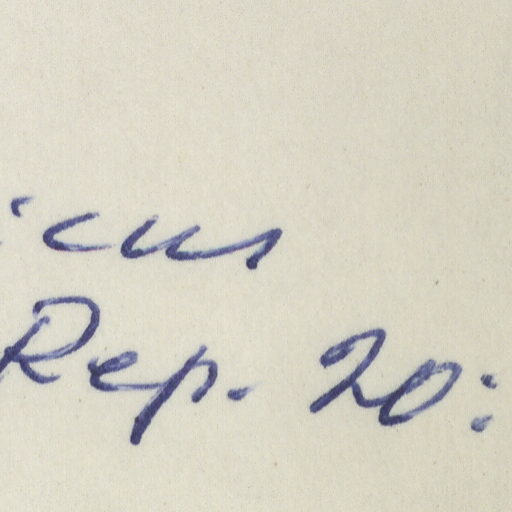 icus
Rep. 20: